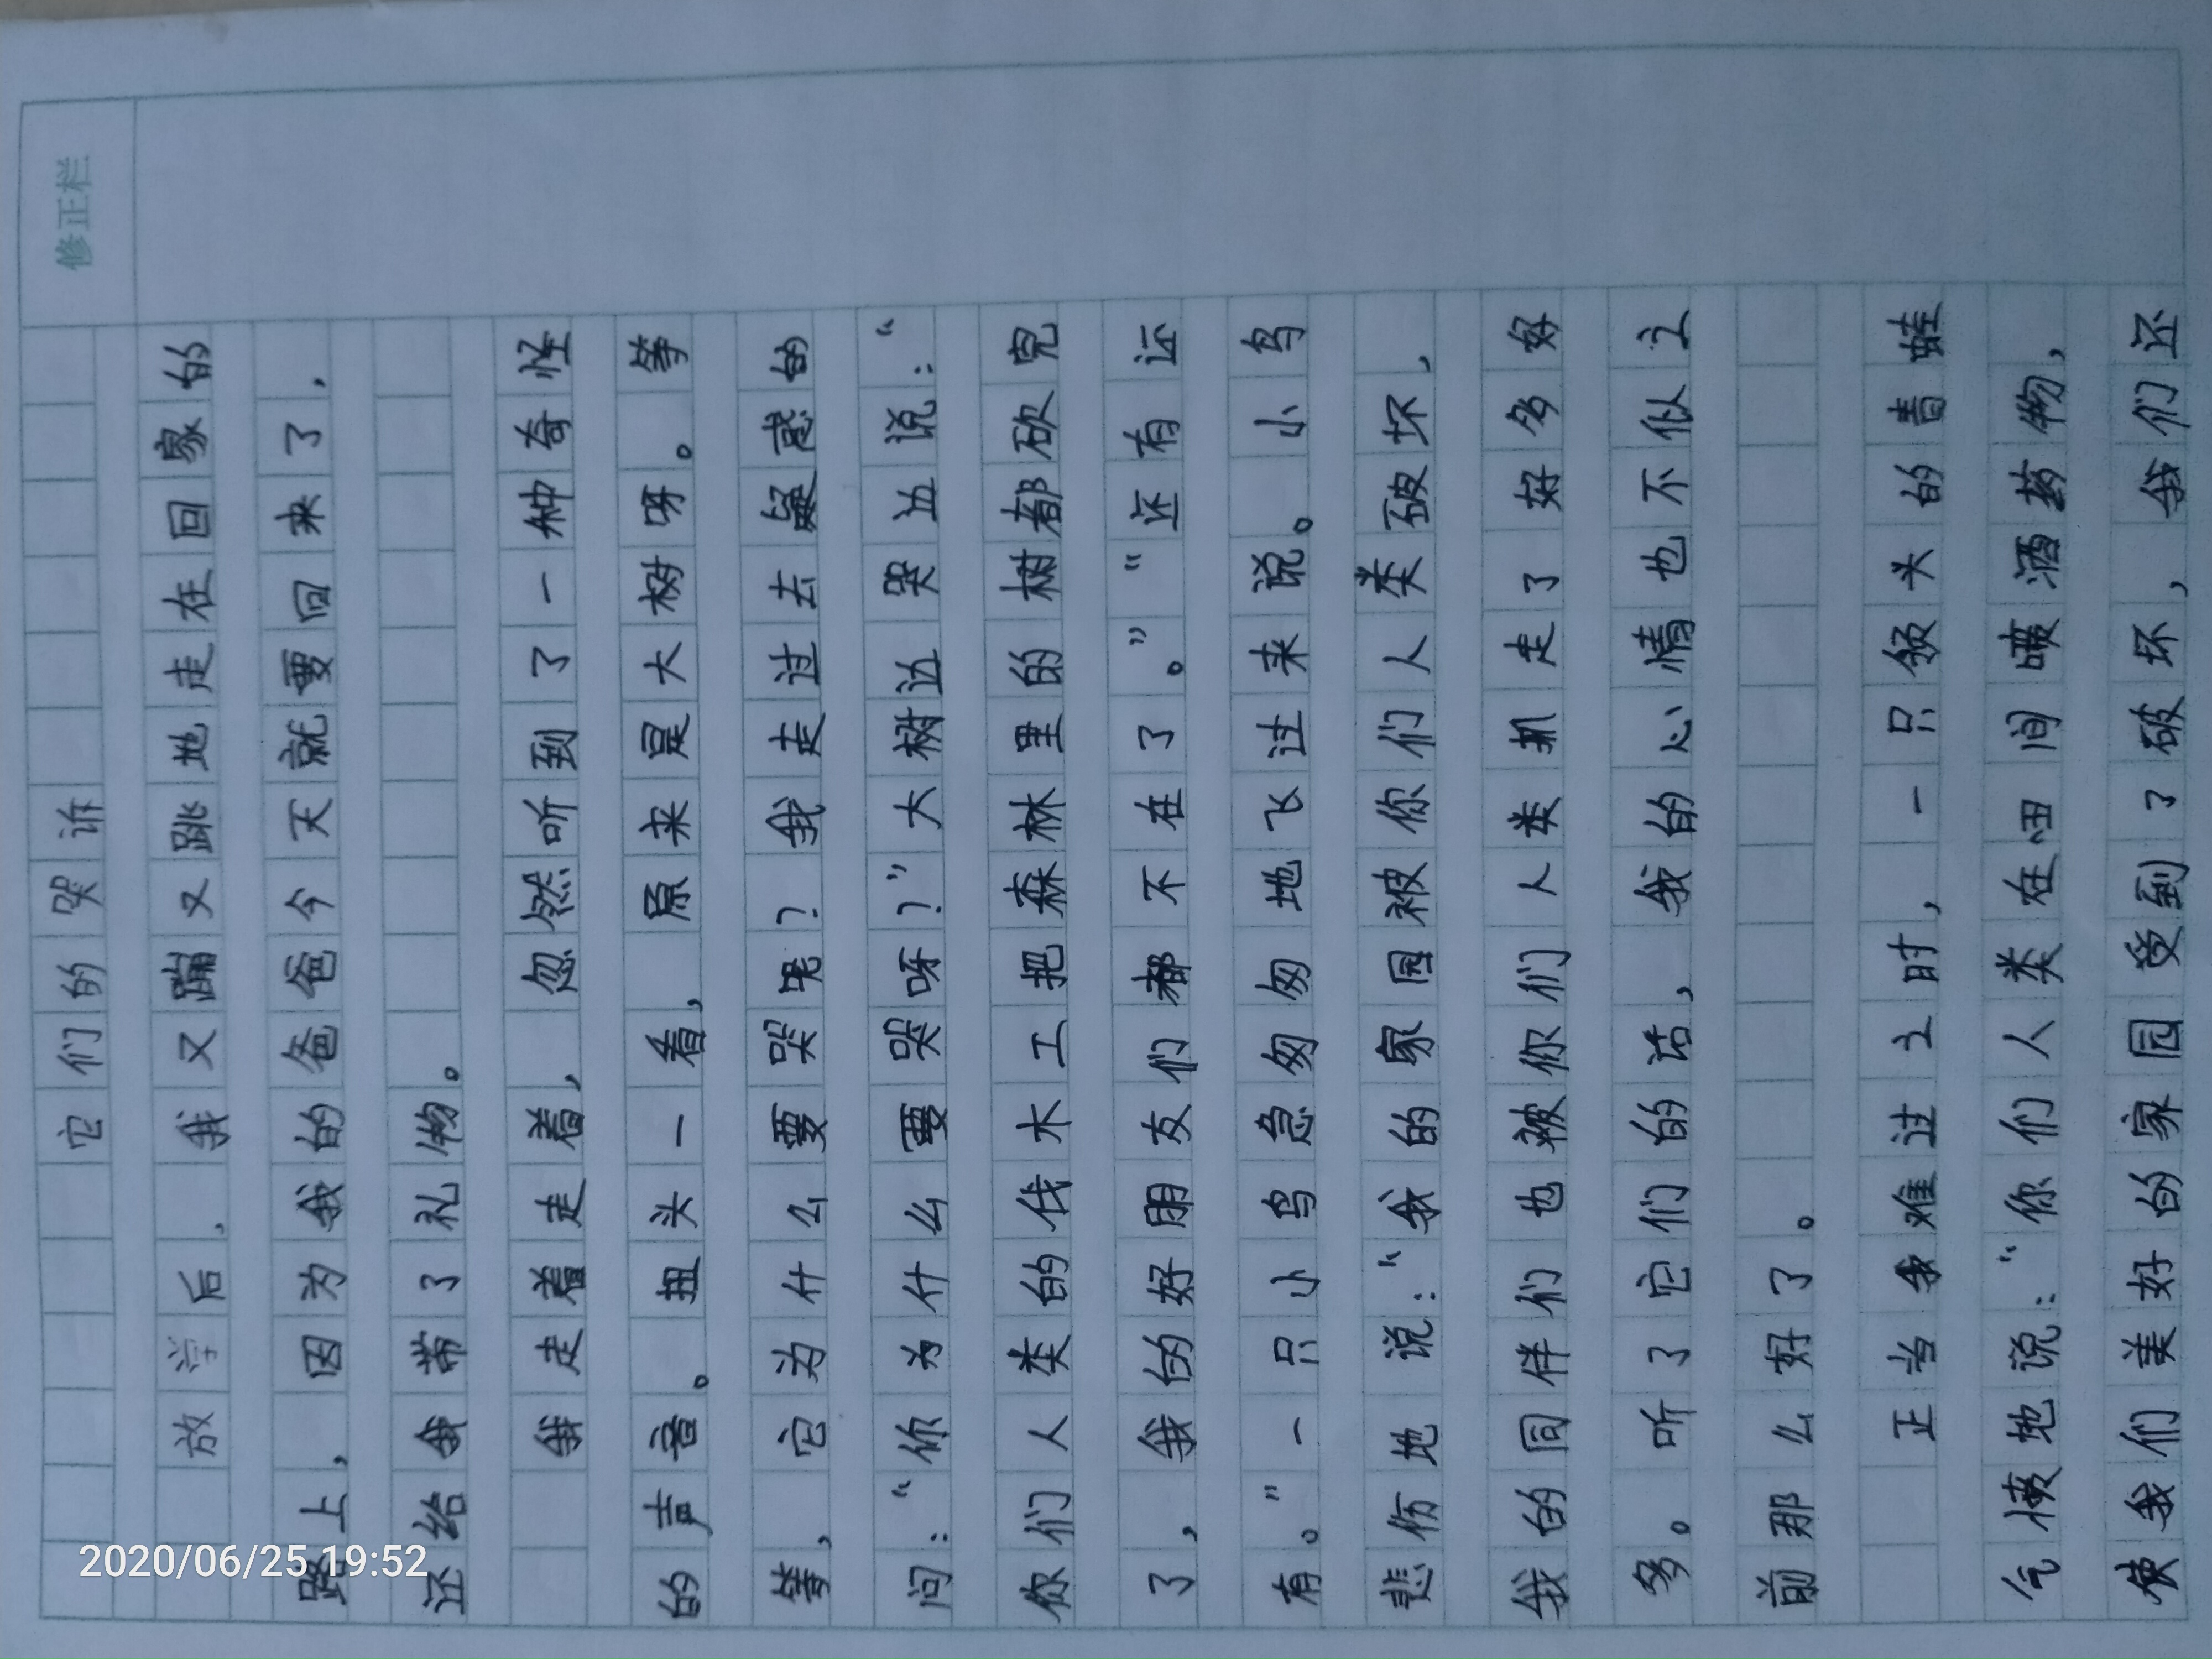 修正栏
它们的哭诉
放学后，我又蹦又跳地走在回家的
路上，因为我的爸爸今天就要回来了，
还给我带了礼物。
我走着走着，忽然听到了一种奇怪
的声音。扭头一看，原来是大树呀。等
等，它为什么要哭呢？我走过去疑惑的
问：“你为什么要哭呀？”大树边哭边说：“
你们人类的伐木工把森林里的树都砍完
了，我的好朋友们都不在了。”“还有还
有。”一只小鸟急匆匆地飞过来说。小鸟
悲伤地说：“我的家园被你们人类破坏，
我的同伴们也被你们人类抓走了好多好
多。听了它们的话，我的心情也不似之
前那么好了。
正当我难过之时，一只领头的青蛙
气愤地说：“你们人类在田间喷洒药物，
使我们美好的家园受到了破坏，我们还
2020/06/25 19:52